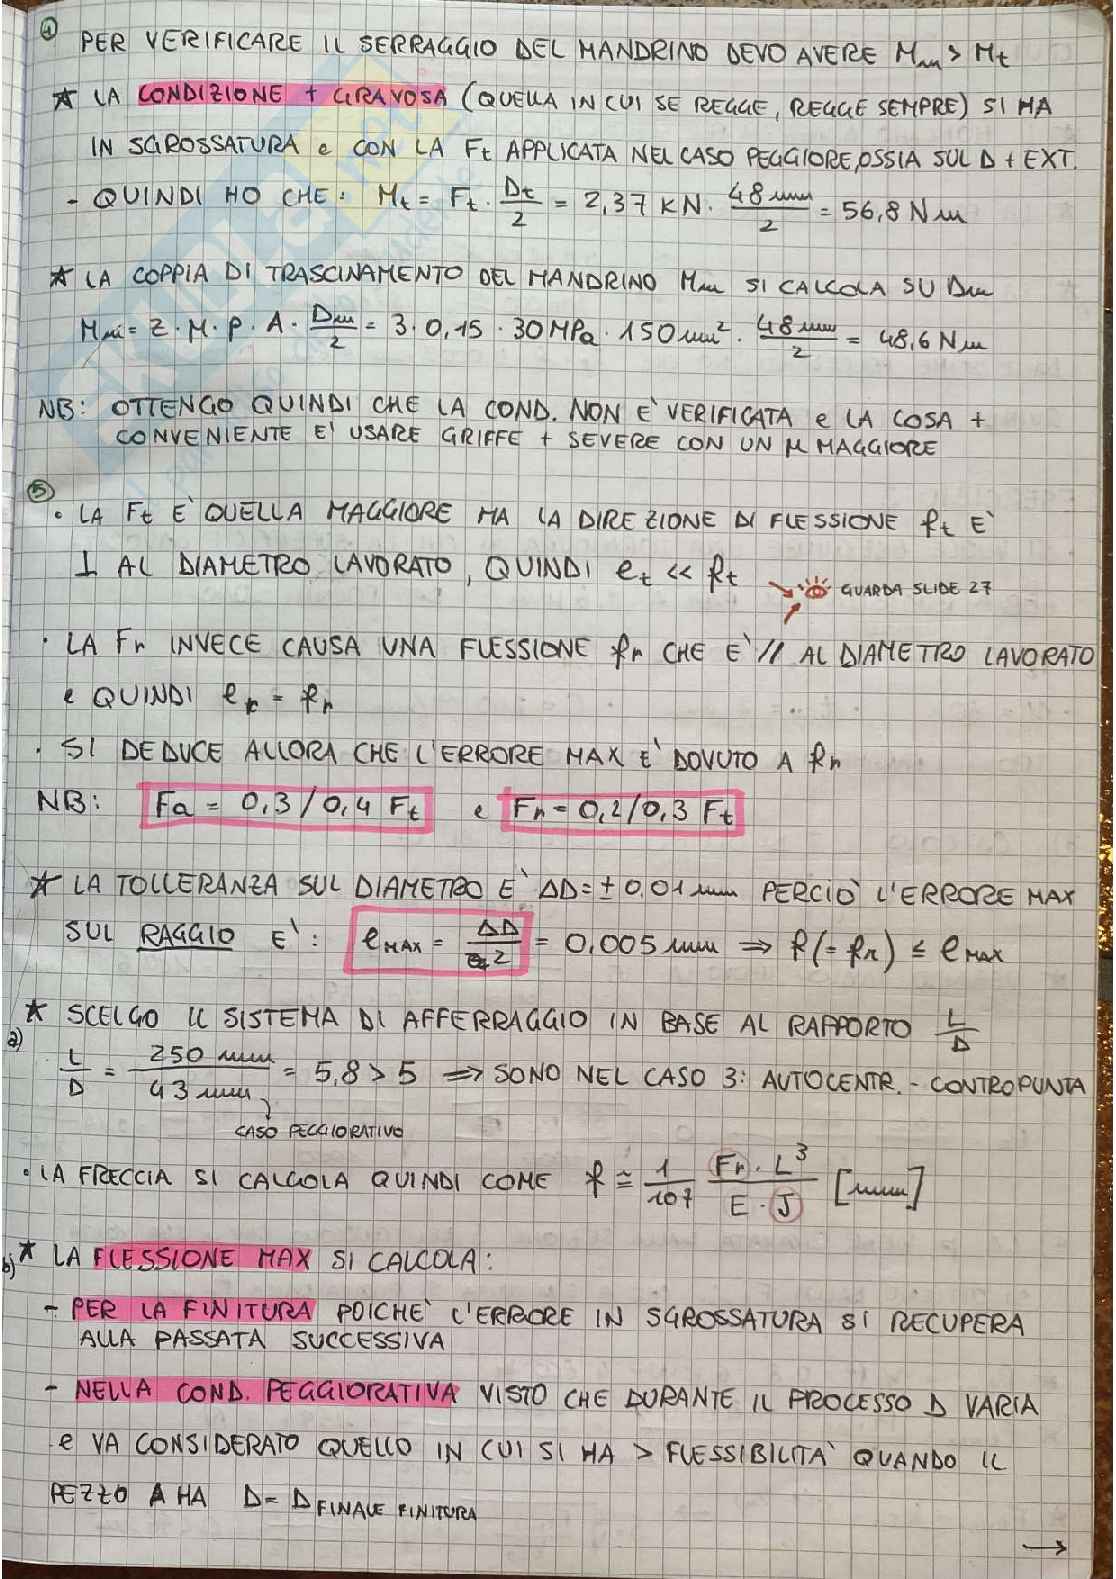 ④ PER VERIFICARE IL SERRAGGIO DEL MANDRINO DEVO AVERE Mm > Mt
★ LA CONDIZIONE + GRAVOSA (QUELLA IN CUI SE REGGE, REGGE SEMPRE) SI HA
IN SGROSSATURA e CON LA Ft APPLICATA NEL CASO PEGGIORE, OSSIA SUL D + EXT.
- QUINDI HO CHE: Mt = Ft · Dt/2 = 2,37 KN · 48 mm/2 = 56,8 Nm
★ LA COPPIA DI TRASCINAMENTO DEL MANDRINO Mm SI CALCOLA SU Dm
Mm = Z · M · P · A · Dm/2 = 3 · 0,15 · 30 MPa · 150 mm² · 48 mm/2 = 48,6 Nm
NB: OTTENGO QUINDI CHE LA COND. NON E' VERIFICATA e LA COSA +
CONVENIENTE E' USARE GRIFFE + SEVERE CON UN μ MAGGIORE
⑤
• LA Ft E' QUELLA MAGGIORE MA LA DIREZIONE DI FLESSIONE ft E'
⊥ AL DIAMETRO LAVORATO, QUINDI et << ft GUARDA SLIDE 27
• LA Fr INVECE CAUSA UNA FLESSIONE fr CHE E' // AL DIAMETRO LAVORATO
e QUINDI er = fr
• SI DEDUCE ALLORA CHE L'ERRORE MAX E' DOVUTO A fr
NB: Fa = 0,3/0,4 Ft e Fr = 0,2/0,3 Ft
★ LA TOLLERANZA SUL DIAMETRO E' ΔD = ± 0,01 mm PERCIO' L'ERRORE MAX
SUL RAGGIO E': eMAX = ΔD/2 = 0,005 mm ⇒ f(= fr) ≤ eMAX
★ SCELGO IL SISTEMA DI AFFERRAGGIO IN BASE AL RAPPORTO L/D
a) L/D = 250 mm/43 mm = 5,8 > 5 ⇒ SONO NEL CASO 3: AUTOCENTR. - CONTROPUNTA
CASO PEGGIORATIVO
• LA FRECCIA SI CALCOLA QUINDI COME f ≅ 1/107 Fr · L³/E · J [mm]
b) ★ LA FLESSIONE MAX SI CALCOLA:
- PER LA FINITURA POICHE' L'ERRORE IN SGROSSATURA SI RECUPERA
ALLA PASSATA SUCCESSIVA
- NELLA COND. PEGGIORATIVA VISTO CHE DURANTE IL PROCESSO D VARIA
e VA CONSIDERATO QUELLO IN CUI SI HA > FLESSIBILITA' QUANDO IL
PEZZO HA D = D FINALE FINITURA
→